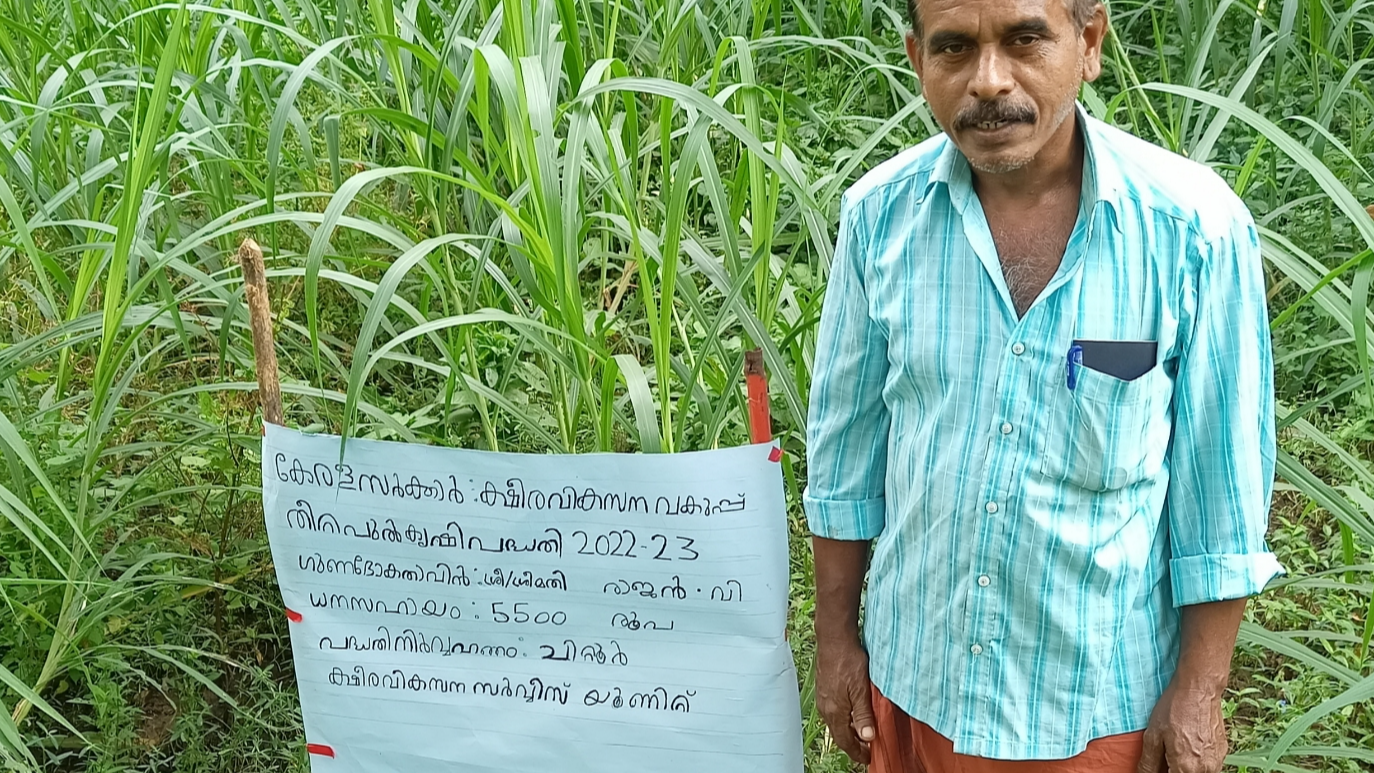 കേരളസർക്കാർ : ക്ഷീരവികസന വകുപ്പ്
തീറ്റപുൽകൃഷിപദ്ധതി 2022-23
ഗുണഭോക്താവിൻ : ശ്രീ/ശ്രീമതി രാജൻ . വി
ധനസഹായം : 5500 രൂപ
പദ്ധതിനിർവ്വഹണം : ചിറ്റൂർ
ക്ഷീരവികസന സർവ്വീസ് യൂണിറ്റ്